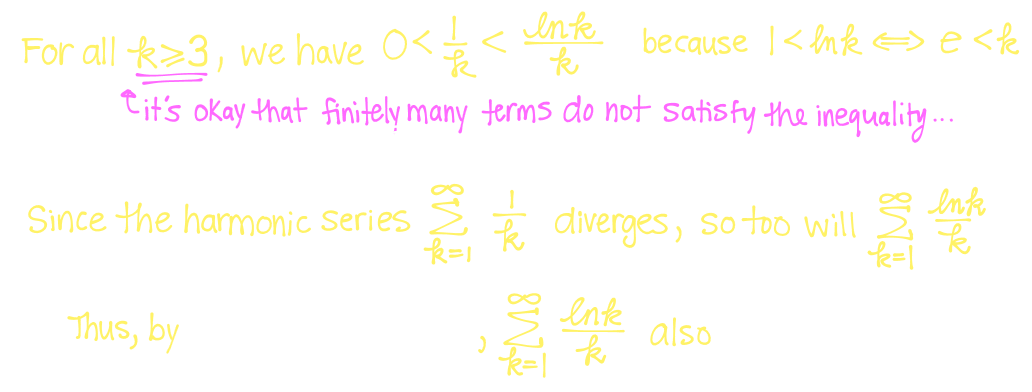 For all k ≥ 3, we have 0 < 1/k < ln k / k because 1 < ln k ⟺ e < k
it's okay that finitely many terms do not satisfy the inequality...
Since the harmonic series ∑_{k=1}^{∞} 1/k diverges, so too will ∑_{k=1}^{∞} ln k / k
Thus, by , ∑_{k=1}^{∞} ln k / k also